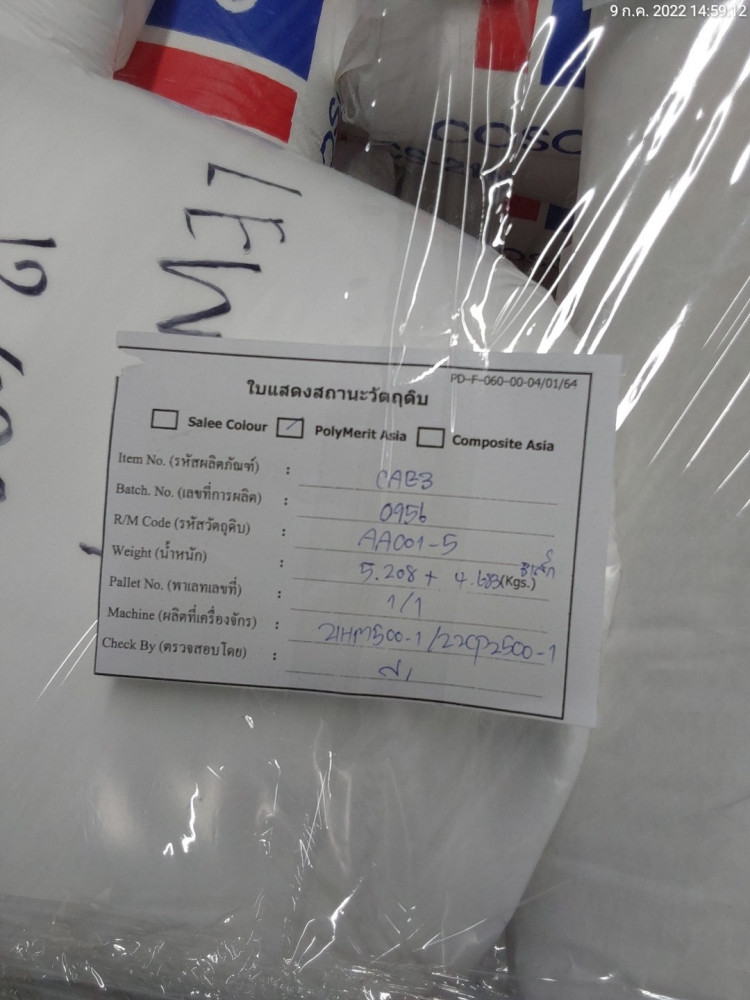 9 ก.ค. 2022 14:59:12
COSC
PD-F-060-00-04/01/64
ใบแสดงสถานะวัตถุดิบ
Salee Colour PolyMerit Asia Composite Asia
Item No. (รหัสผลิตภัณฑ์) : CAB3
Batch. No. (เลขที่การผลิต) : 0956
R/M Code (รหัสวัตถุดิบ) : AA001-5
Weight (น้ำหนัก) : 5.208 + (Kgs.)
Pallet No. (พาเลทเลขที่) : 1/1
Machine (ผลิตที่เครื่องจักร) : 21HM500-1 /22CP2500-1
Check By (ตรวจสอบโดย) :